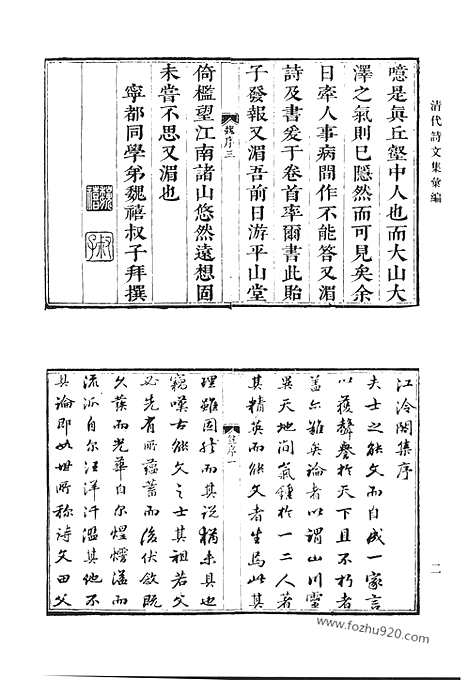 清代詩文集彙編
噫是眞丘壑中人也而大山大
澤之氣則已隱然而可見矣余
日牽人事病闇作不能答又湄
詩及書爰于卷首率爾書此貽
子發報又湄吾前日游平山堂
魏序三
倚檻望江南諸山悠然遠想固
未嘗不思又湄也
寧都同學弟魏禧叔子拜撰
魏禧
叔子
江泠閣集序
夫士之能文而自成一家言
以獲聲譽於天下且不朽者
蓋亦難矣論者以謂山川靈
異天地間氣鍾於一二人著
其精英而能文者生焉此其
序一
理雖固然而其說猶未具也
竊嘆古能文之士其祖若父
必先有所蘊蓄而後伏斂既
久葉而光華自爾煜燿溢而
流派自爾汪洋汗濫其他不
具論即如世所稱詩文田父
二
www.fozhu920.com